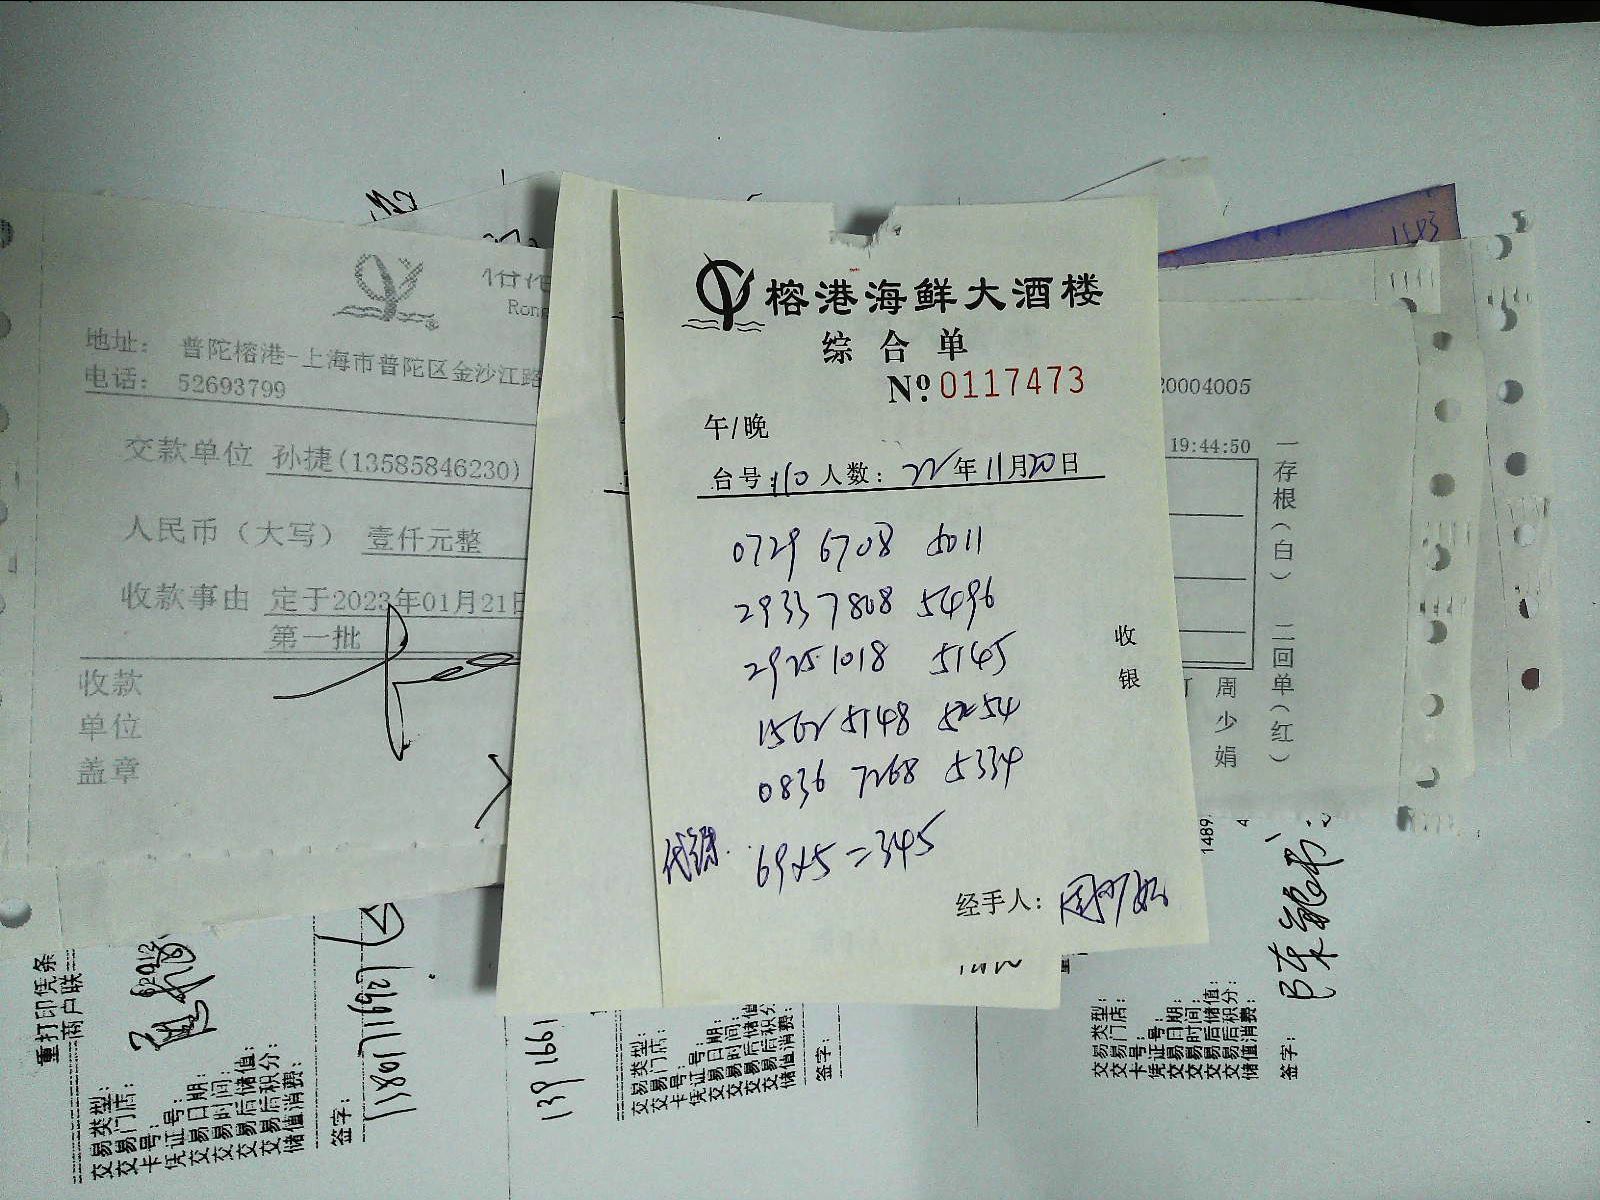 榕港海鲜大酒楼
综合单
№ 0117473
午/晚
台号:110 人数: 22年11月20日
0729 6708 5011
2933 7808 5496
2925 1018 5145
1562 5148 5254
0836 7268 5334
69×5=345
收银
经手人:
地址: 普陀榕港-上海市普陀区金沙江路
电话: 52693799
交款单位 孙捷(13585846230)
人民币(大写) 壹仟元整
收款事由 定于2023年01月21日
第一批
收款
单位
盖章
1583
20004005
19:44:50
一存根(白) 二回单(红)
周少娟
重打印凭条
商户联
62912
交易类型:
交易门店:
卡号:
凭证号:
交易日期:
交易时间:
交易后储值:
交易后积分:
储值消费:
签字:
13801711692
139 1661
交易类型:
交易门店:
卡号:
凭证号:
交易日期:
交易时间:
交易后储值:
交易后积分:
储值消费:
签字:
1489.
4
交易类型:
交易门店:
卡号:
凭证号:
交易日期:
交易时间:
交易后储值:
交易后积分:
储值消费:
签字: